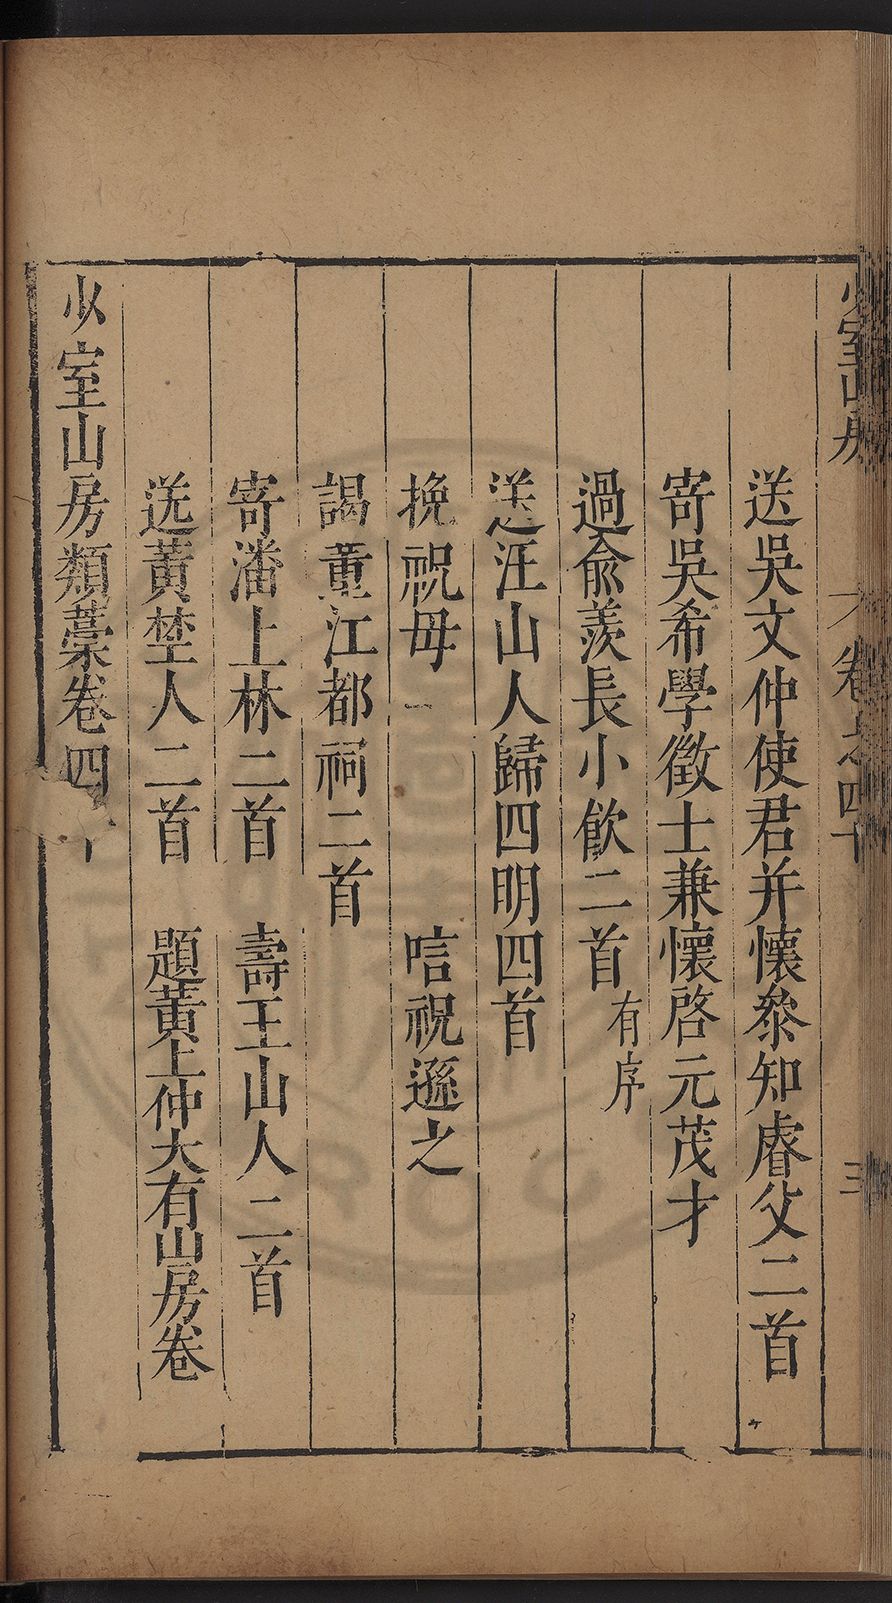 少室山房 卷之四十 三
送吳文仲使君并懷叅知睿父二首
寄吳希學徵士兼懷啓元茂才
過俞羨長小飲二首 有序
送汪山人歸四明四首
挽祝母 唁祝遜之
謁董江都祠二首
寄潘上林二首 壽王山人二首
送黃埜人二首 題黃上仲大有山房卷
少室山房類藁卷四十